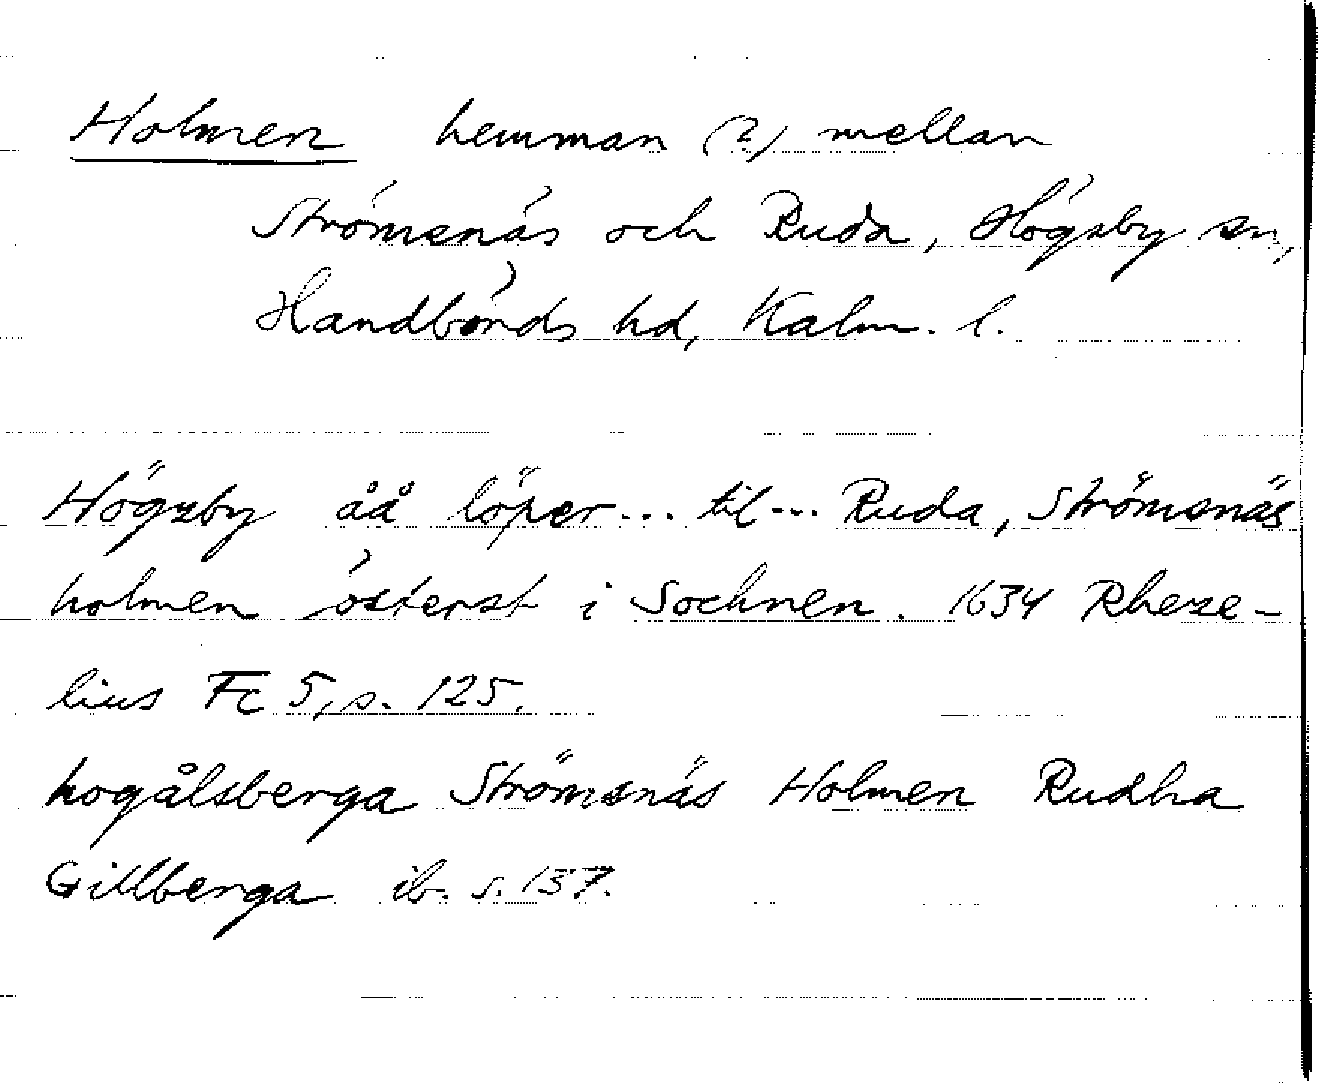 Holmen hemman (?) mellan
Strömsnäs och Ruda, Högsby sn,
Handbörds hd, Kalm. l.
Högzby åå löper... til... Ruda, Strömsnäs
holmen österst i Sochnen. 1634 Rheze-
lius Fc 5, s. 125.
hogålsberga Strömsnäs Holmen Rudha
Gillberga ib. s. 137.